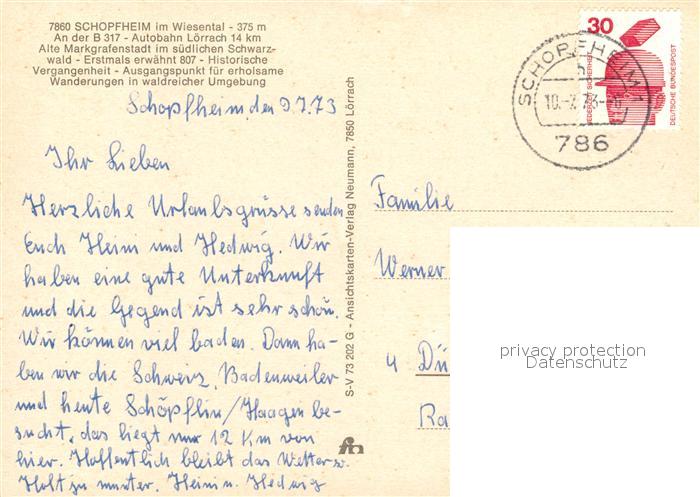 7860 SCHOPFHEIM im Wiesental - 375 m
An der B 317 - Autobahn Lörrach 14 km
Alte Markgrafenstadt im südlichen Schwarz-
wald - Erstmals erwähnt 807 - Historische
Vergangenheit - Ausgangspunkt für erholsame
Wanderungen in waldreicher Umgebung
Schopfheim, den 9.7.73
Ihr Lieben
Herzliche Urlaubsgrüsse senden
Euch Heini und Hedwig. Wir
haben eine gute Unterkunft
und die Gegend ist sehr schön.
Wir können viel baden. Dann ha-
ben wir die Schweiz, Badenweiler
und heute Schöpflin/Haagen be-
sucht, das liegt nur 12 Km von
hier. Hoffentlich bleibt das Wetter
Heini u. Hedwig
S-V 73 202 G - Ansichtskarten-Verlag Neumann, 7850 Lörrach
30
JEDERZEIT SICHERHEIT
DEUTSCHE BUNDESPOST
SCHOPFHEIM 1
786
Familie
Werner
4 Dü
Ra
privacy protection
Datenschutz